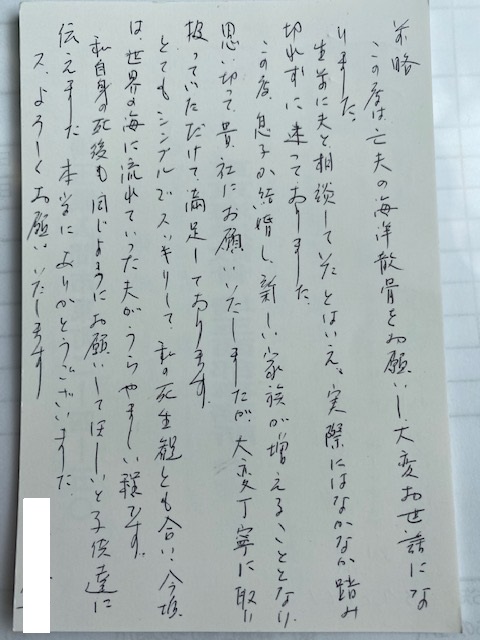 前略
この度は亡夫の海洋散骨をお願いし、大変お世話にな
りました。
生前に夫と相談していたとはいえ、実際にはなかなか踏み
切れずに迷っておりました。
この度、息子が結婚し、新しい家族が増えることとなり、
思い切って、貴社にお願いいたしましたが、大変丁寧に取り
扱っていただけて、満足しております。
とてもシンプルでスッキリして、私の死生観とも合い、今頃
は、世界の海に流れていった夫がうらやましい程です。
私自身の死後も同じようにお願いしてほしいと子供達に
伝えました。本当にありがとうございました。
よろしくお願いいたします